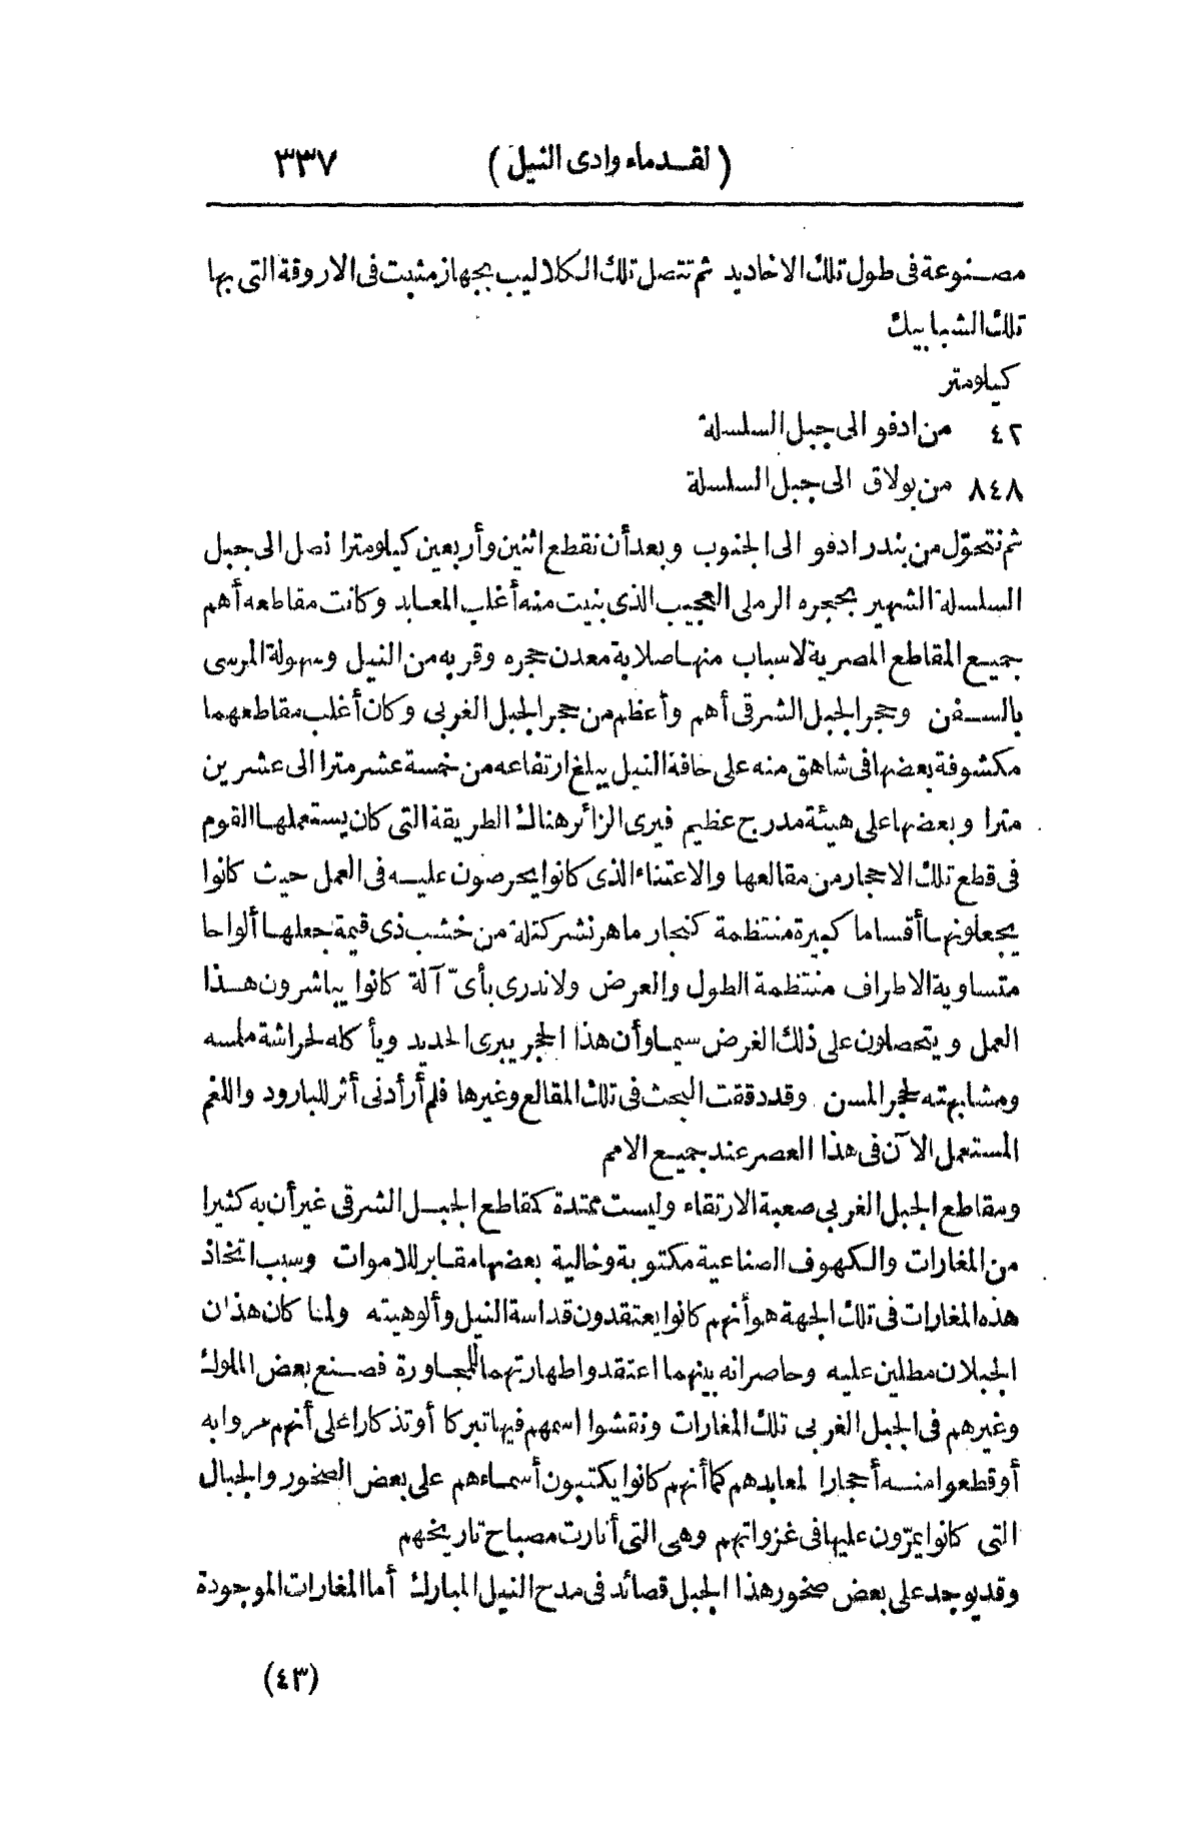 (لقدماء وادى النيل) ٣٣٧
مصنوعة فى طول تلك الاخاديد ثم تتصل تلك الكلاليب بجهاز مثبت فى الاروقة التى بها
تلك الشبابيك
كيلومتر
٤٢ من ادفو الى جبل السلسلة
٨٤٨ من بولاق الى جبل السلسلة
ثم نتحوّل من بندر ادفو الى الجنوب وبعد أن نقطع اثنين وأربعين كيلومترا نصل الى جبل
السلسلة الشهير بحجره الرملى العجيب الذى بنيت منه أغلب المعابد وكانت مقاطعه أهم
جميع المقاطع المصرية لاسباب منها صلابة معدن حجره وقربه من النيل وسهولة المرسى
بالسفن وحجر الجبل الشرقى أهم وأعظم من حجر الجبل الغربى وكان أغلب مقاطعهما
مكشوفة بعضها فى شاهق منه على حافة النيل يبلغ ارتفاعه من خمسة عشر مترا الى عشرين
مترا وبعضها على هيئة مدرج عظيم فيرى الزائر هناك الطريقة التى كان يستعملها القوم
فى قطع تلك الاحجار من مقالعها والاعتناء الذى كانوا يحرصون عليه فى العمل حيث كانوا
يجعلونها أقساما كبيرة منتظمة كنجار ماهر نشر كتلة من خشب ذى قيمة جعلها ألواحا
متساوية الاطراف منتظمة الطول والعرض ولا ندرى بأىّ آلة كانوا يباشرون هذا
العمل ويتحصلون على ذلك الغرض سيما وأن هذا الحجر يبرى الحديد ويأكله لحراشة ملسه
ومشابهته لحجر المسن وقد دققت البحث فى تلك المقالع وغيرها فلم أر أدنى أثر للبارود واللغم
المستعمل الآن فى هذا العصر عند جميع الامم
ومقاطع الجبل الغربى صعبة الارتقاء وليست ممتدة كمقاطع الجبل الشرقى غير أن به كثيرا
من المغارات والكهوف الصناعية مكتوبة وخالية بعضها مقابر للاموات وسبب اتخاذ
هذه المغارات فى تلك الجهة هو أنهم كانوا يعتقدون قداسة النيل وألوهيته ولما كان هذان
الجبلان مطلين عليه وحاصرانه بينهما اعتقدوا طهارتهما للمجاورة فصنع بعض الملوك
وغيرهم فى الجبل الغربى تلك المغارات ونقشوا اسمهم فيها تبركا أو تذكارا على أنهم مروا به
أو قطعوا منه أحجارا لمعابدهم كما أنهم كانوا يكتبون أسماءهم على بعض الصخور والجبال
التى كانوا يمرّون عليها فى غزواتهم وهى التى أنارت مصباح تاريخهم
وقد يوجد على بعض صخور هذا الجبل قصائد فى مدح النيل المبارك أما المغارات الموجودة
(٤٣)